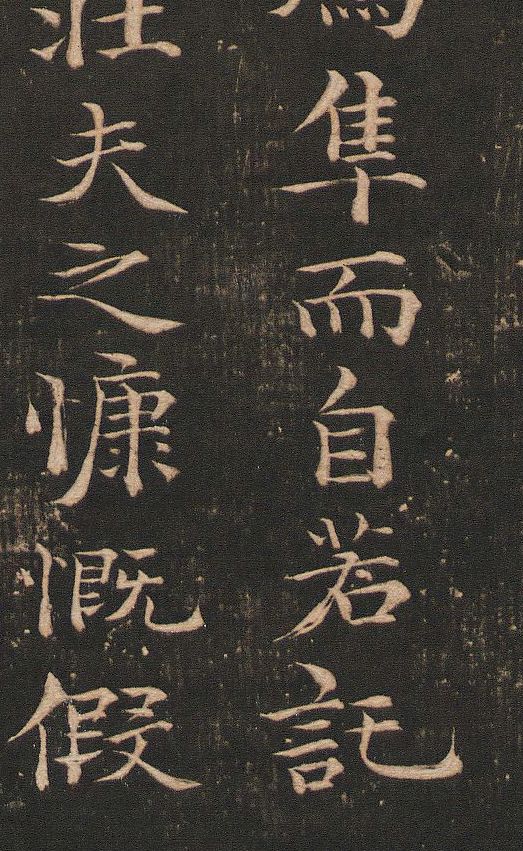 隼而自若託
壯夫之慷慨假